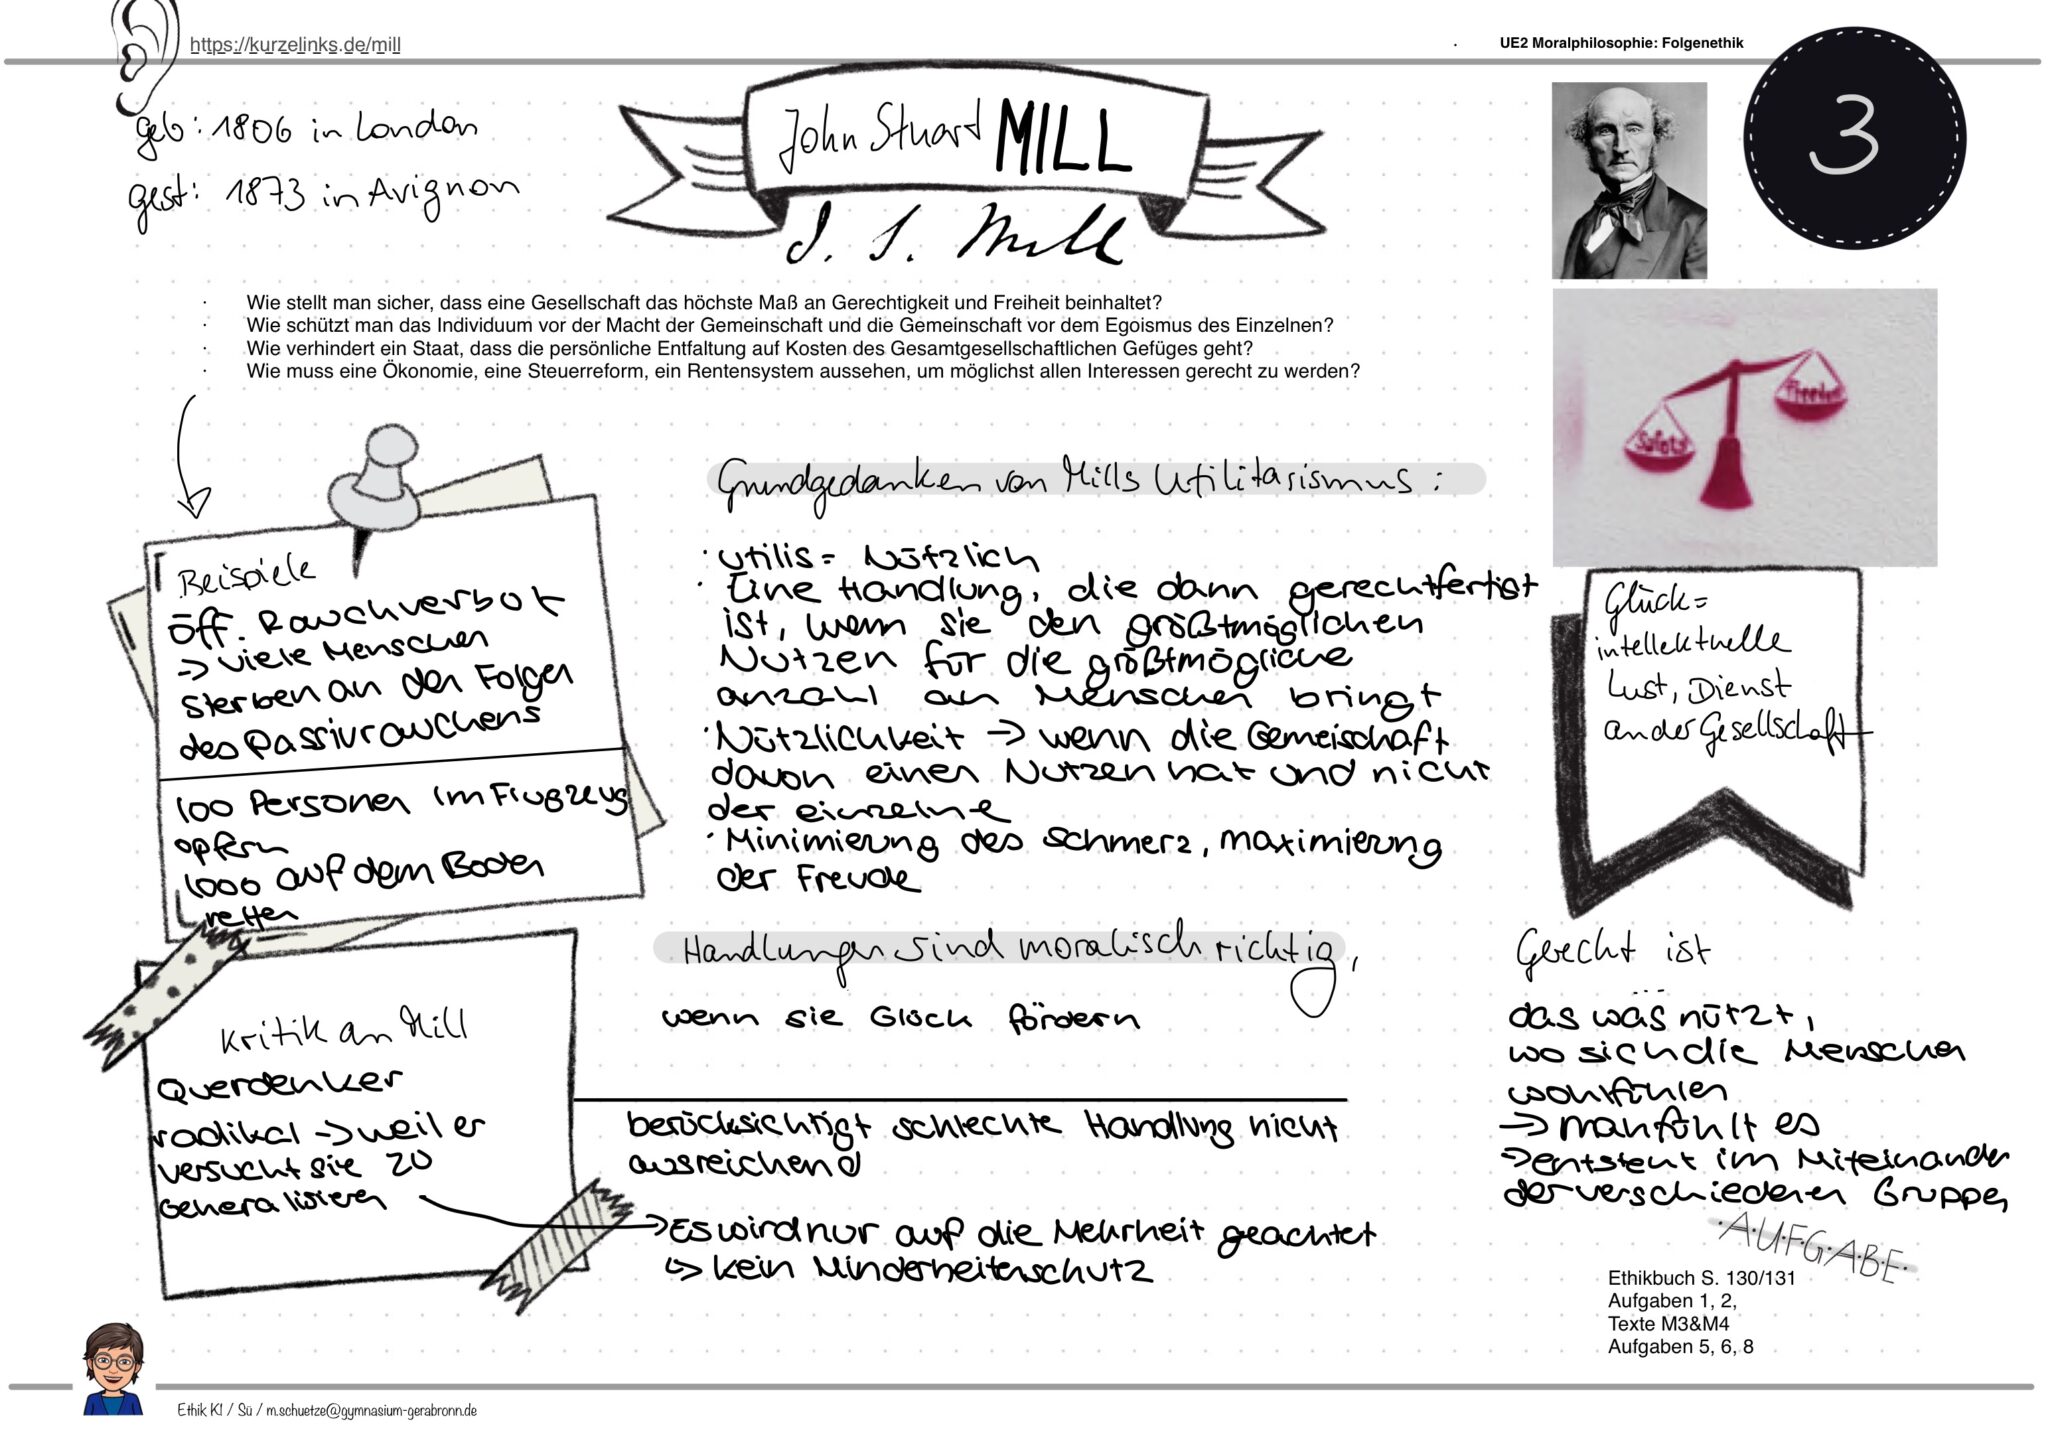 https://kurzelinks.de/mill
· UE2 Moralphilosophie: Folgenethik
3
geb: 1806 in London
gest: 1873 in Avignon
John Stuard MILL
J. S. Mill
· Wie stellt man sicher, dass eine Gesellschaft das höchste Maß an Gerechtigkeit und Freiheit beinhaltet?
· Wie schützt man das Individuum vor der Macht der Gemeinschaft und die Gemeinschaft vor dem Egoismus des Einzelnen?
· Wie verhindert ein Staat, dass die persönliche Entfaltung auf Kosten des Gesamtgesellschaftlichen Gefüges geht?
· Wie muss eine Ökonomie, eine Steuerreform, ein Rentensystem aussehen, um möglichst allen Interessen gerecht zu werden?
Safety
Freedom
Beispiele
Öff. Rauchverbot
-> viele Menschen
sterben an den Folgen
des Passivrauchens
100 Personen im Flugzeug
opfern
1000 auf dem Boden
retten
Grundgedanken von Mills Utilitarismus:
· utilis = Nützlich
· Eine Handlung, die dann gerechtfertigt
ist, wenn sie den größtmöglichen
Nutzen für die größtmögliche
anzahl an Menschen bringt
· Nützlichkeit -> wenn die Gemeischaft
davon einen Nutzen hat und nicht
der einzelne
· Minimierung des schmerz, maximierung
der Freude
Glück =
intellektuelle
Lust, Dienst
an der Gesellschaft
Handlungen sind moralisch richtig,
wenn sie Glück fördern
Gerecht ist
...
das was nützt,
wo sich die Menschen
wohlfühlen
-> man fühlt es
-> entsteht im Miteinander
der verschiedenen Gruppen
Kritik an Mill
Querdenker
radikal -> weil er
versucht sie zu
generalisieren
berücksichtigt schlechte Handlung nicht
ausreichend
-> Es wird nur auf die Mehrheit geachtet
↳ kein Minderheitenschutz
·A·U·F·G·A·B·E·
Ethikbuch S. 130/131
Aufgaben 1, 2,
Texte M3&M4
Aufgaben 5, 6, 8
Ethik K1 / Sü / m.schuetze@gymnasium-gerabronn.de